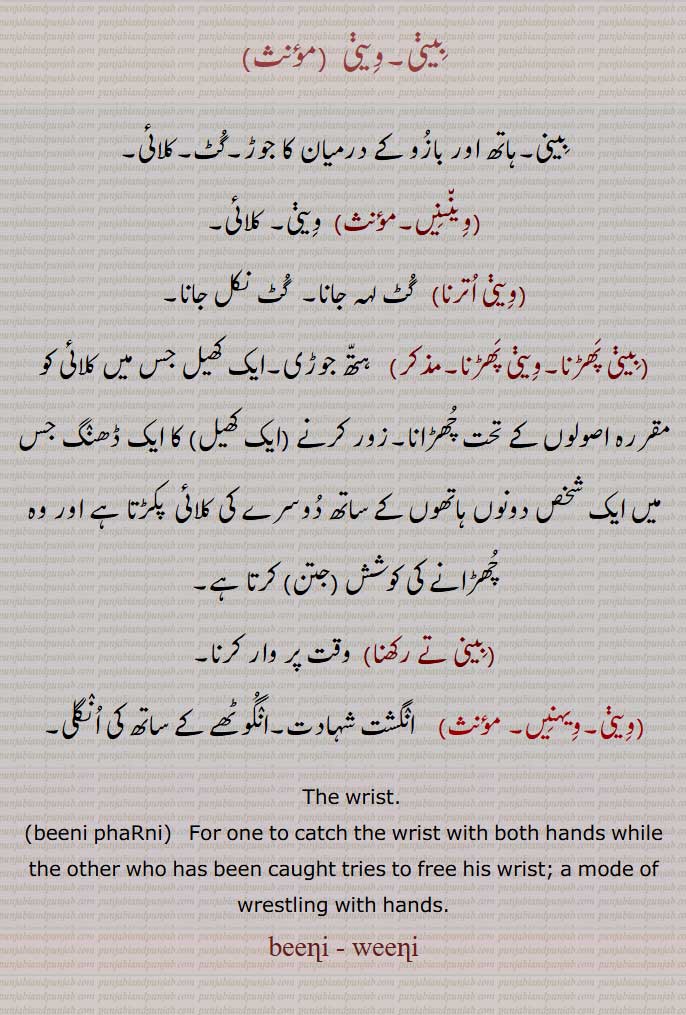 بِینیؕ۔وِینیؕ (مؤنث)
بِینی۔ہاتھ اور بازُو کے درمیان کا جوڑ۔گُٹ۔کلائی۔
(وِینّنِیں۔مؤنث) وِینیؕ۔ کلائی۔
(وِینیؕ اُترنا) گُٹ لہہ جانا۔ گُٹ نکل جانا۔
(بِینیؕ پَھڑنا۔وِینیؕ پَھڑنا۔مذکر) ہتھّ جوڑی۔ایک کھیل جس میں کلائی کو
مقررہ اصولوں کے تحت چُھڑانا۔زور کرنے (ایک کھیل) کا ایک ڈھنگ جس
میں ایک شخص دونوں ہاتھوں کے ساتھ دُوسرے کی کلائی پکڑتا ہے اور وہ
چُھڑانے کی کوشش (جتن) کرتا ہے۔
(بِینی تے رکھنا) وقت پر وار کرنا۔
(وِینیؕ۔وِیہنِیں۔ مؤنث) انگشت شہادت۔انگُوٹھے کے ساتھ کی اُنگلی۔
The wrist.
(beeni phaRni) For one to catch the wrist with both hands while
the other who has been caught tries to free his wrist; a mode of
wrestling with hands.
beeɳi - weeɳi